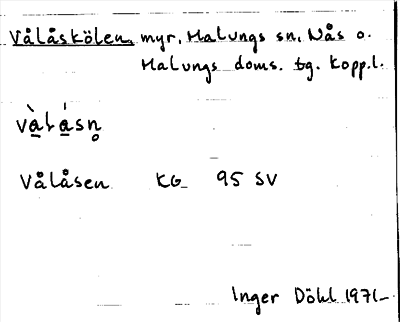 Vålåskölen, myr, Malungs sn, Nås o.
Malungs doms. tg. Kopp.l.
và̱lá̱sn̥
Vålåsen KG 95 SV
Inger Döhl 1971